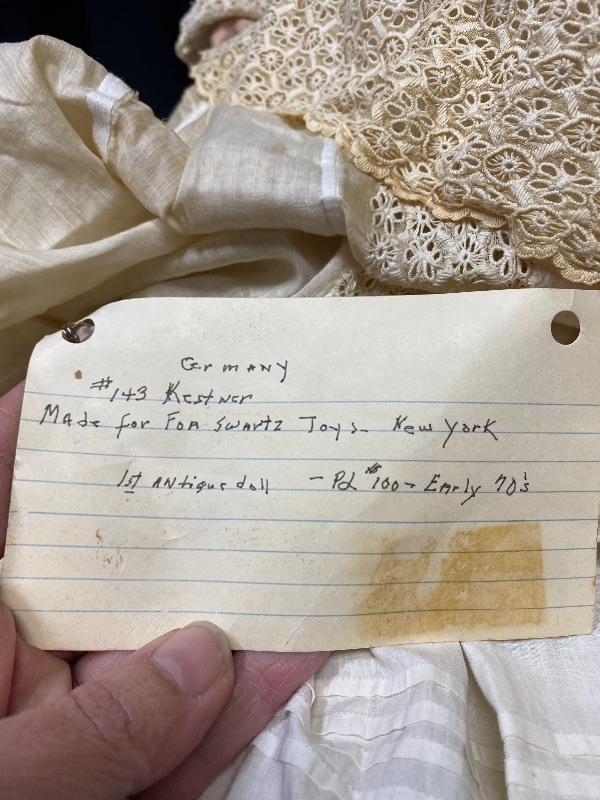 Germany
#143 Kestner
Made for Foa Swartz Toys - New York
1st Antique doll - Pd $100 - Early 70's